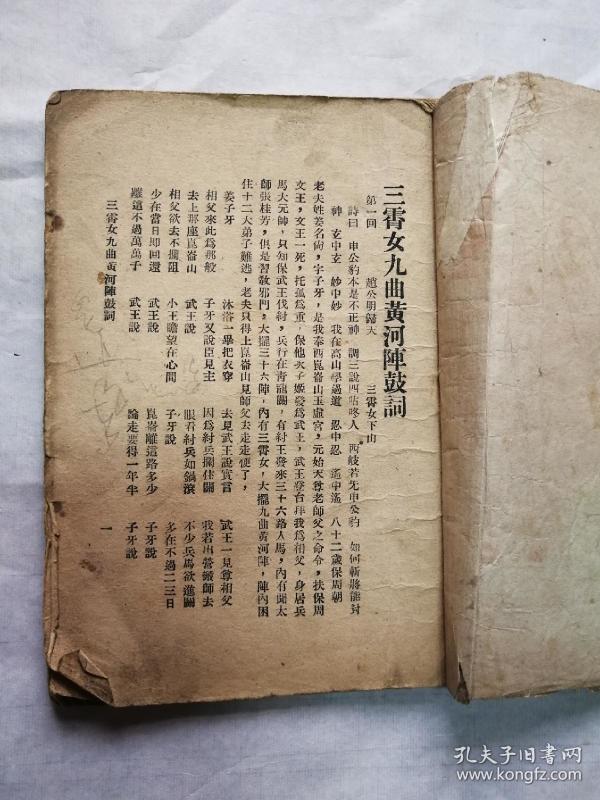 三霄女九曲黃河陣鼓詞
第一回 趙公明歸天 三霄女下山
詩曰 申公豹本是不正神 調三說四咕咚人 西岐若无申公豹 如何斬將能封
神 玄中玄 妙中妙 我在高山學過道 忍中忍 遙中遙 八十二歲保周朝
老夫姓姜名尙，字子牙，是我奉西崑崙山玉虛宮，元始天尊老師父之命令，扶保周
文王，文王一死，托孤爲重，保他次子姬發爲武王，武王登台拜我爲相父，身居兵
馬大元帥，只知保武王伐紂，兵行在靑龍關，有紂王發來三十六路人馬，內有聞太
師張桂芳，俱是習敎邪門，大擺三十六陣，內有三霄女，大擺九曲黃河陣，陣內困
住十二大弟子難逃，老夫只得上崑崙山見師父去走走便了，
姜子牙 沐浴一畢把衣穿 去見武王說實言 武王一見尊相父
相父來此爲那般 子牙又說臣見主 因爲紂兵攔住關 我若出營搬師去
去上那座崑崙山 武王說 眼看紂兵如鍋滾 不少兵馬欲進關
相父欲去不攔阻 小王瞻望在心間 子牙說 多在不過二三日
少在當日卽回還 武王說 崑崙離這路多少 子牙說
離這不過萬萬千 武王說 論走要得一年半 子牙說
三霄女九曲黃河陣鼓詞 一
孔夫子旧書网
www.kongfz.com